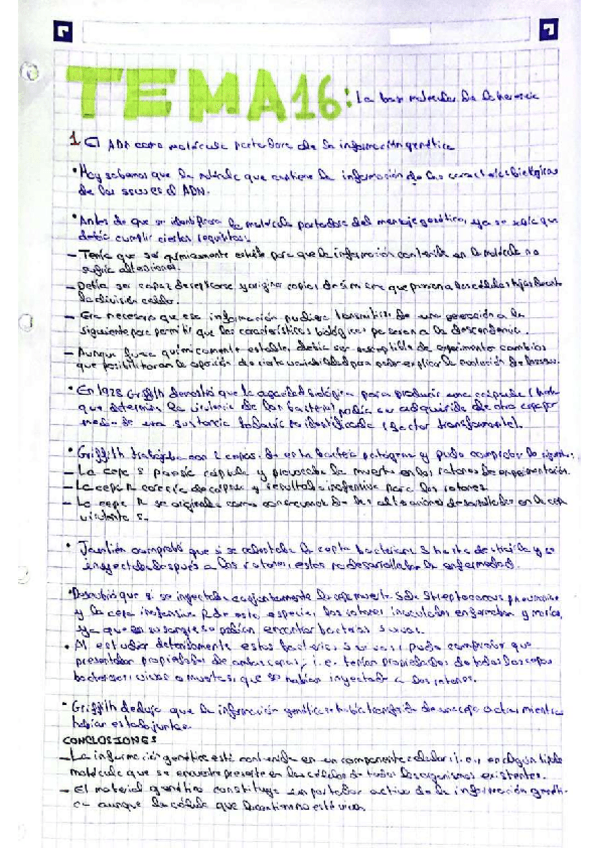 TEMA 16: La base molecular de la herencia
1. El ADN como molécula portadora de la información genética
• Hoy sabemos que la molécula que contiene la información de las características biológicas
de los seres es el ADN.
• Antes de que se identificara la molécula portadora del mensaje genético, ya se sabía que
debía cumplir ciertos requisitos:
- Tenía que ser químicamente estable para que la información contenida en la molécula no
sufría alteraciones.
- Debía ser capaz de replicarse y originar copias de sí misma que pasaran a las células hijas durante
la división celular.
- Era necesario que esa información pudiera transmitirse de una generación a la
siguiente para permitir que las características biológicas pasaran a la descendencia.
- Aunque fuera químicamente estable, debía ser susceptible de experimentar cambios
que posibilitaran la aparición de cierta variabilidad para poder explicar la evolución de
• En 1928 Griffith demostró que la capacidad biológica para producir una cápsula
que determina la virulencia de las bacterias podía ser adquirida de otra cepa por
medio de una sustancia todavía no identificada (factor transformante).
• Griffith trabajaba con 2 cepas de esta bacteria patógena y pudo comprobar lo siguiente:
- La cepa S poseía cápsula y provocaba la muerte en los ratones de experimentación.
- La cepa R carecía de cápsula y resultaba inofensiva para los ratones.
- La cepa R se originaba como consecuencia de las alteraciones desarrolladas en la cepa
virulenta S.
• También comprobó que si se calentaba la cepa bacteriana S hasta destruirla y se
inyectaba después a los ratones, estos no desarrollaban la enfermedad.
• Descubrió que si se inyectaba conjuntamente la cepa muerta S de Streptococcus pneumoniae
y la cepa inofensiva R de esta especie, los ratones inoculados enfermaban y morían,
ya que en su sangre se podían encontrar bacterias S vivas.
• Al estudiar detenidamente estas bacterias S vivas, pudo comprobar que
presentaban propiedades de ambas cepas, i.e. tenían propiedades de todas las cepas
bacterianas, vivas o muertas, que se habían inyectado a los ratones.
• Griffith dedujo que la información genética se había transferido de una cepa a otra mientras
habían estado juntas.
CONCLUSIONES
- La información genética está contenida en un componente celular i.e., en algún tipo de
molécula que se encuentra presente en las células de todos los organismos existentes.
- El material genético constituye un portador activo de la información genéti-
ca aunque la célula que lo contiene no esté viva.